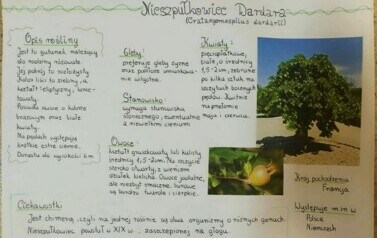 Nieszpułkowiec Dardara
(Crataegomespilus dardarii)
Opis rośliny
Jest to gatunek należący
do rodziny różowate.
Jej pokrój to nieduży
kształt eliptyczny,
Posiada owoce o kolorze
brązowym oraz białe
kwiaty.
Na pędach występują
krótkie ostre ciernie.
Dorasta do wysokości 6m
Gleby:
preferuje gleby żyzne
oraz podłoże umiarkowa-
nie wilgotne.
Stanowisko:
wymaga stanowiska
słonecznego, ewentualnie
z niewielkim cieniem
Owoce:
kształt gruszkowaty lub kulisty
średnicy 1,5-2cm. Na szczycie
szeroko otwarty z wieńcem
działek kielicha. Owoce jadalne,
ale niezbyt smaczne, surowe
są bardzo twarde i cierpkie.
Kwiaty:
pięciopłatkowe,
białe, o średnicy
1,5-2cm, zebrane
po kilka sztuk na
szczytach bocznych
pędów. Kwitnie
na przełomie
maja i czerwca.
Kraj pochodzenia
Francja
Występuje m.in w
Polsce
Niemczech
Ciekawostki
Jest chimerą, czyli na jednej roślinie są dwa organizmy o różnych genach.
Nieszpułkowiec powstał w XIX w. zaszczepionej na głogu.